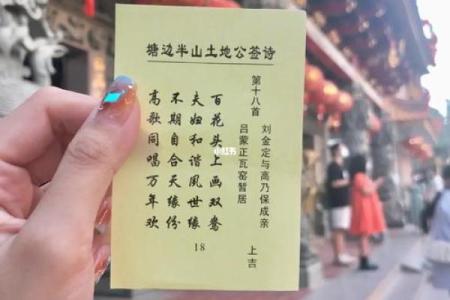 塘边半山土地公签诗
第十八首
刘金定与高乃保成亲
吕蒙正瓦窑暂居
上吉
百花头上画双鸯
夫妇和谐風世缘
不期自合天缘份
高歌同唱万年欢
18
小红书